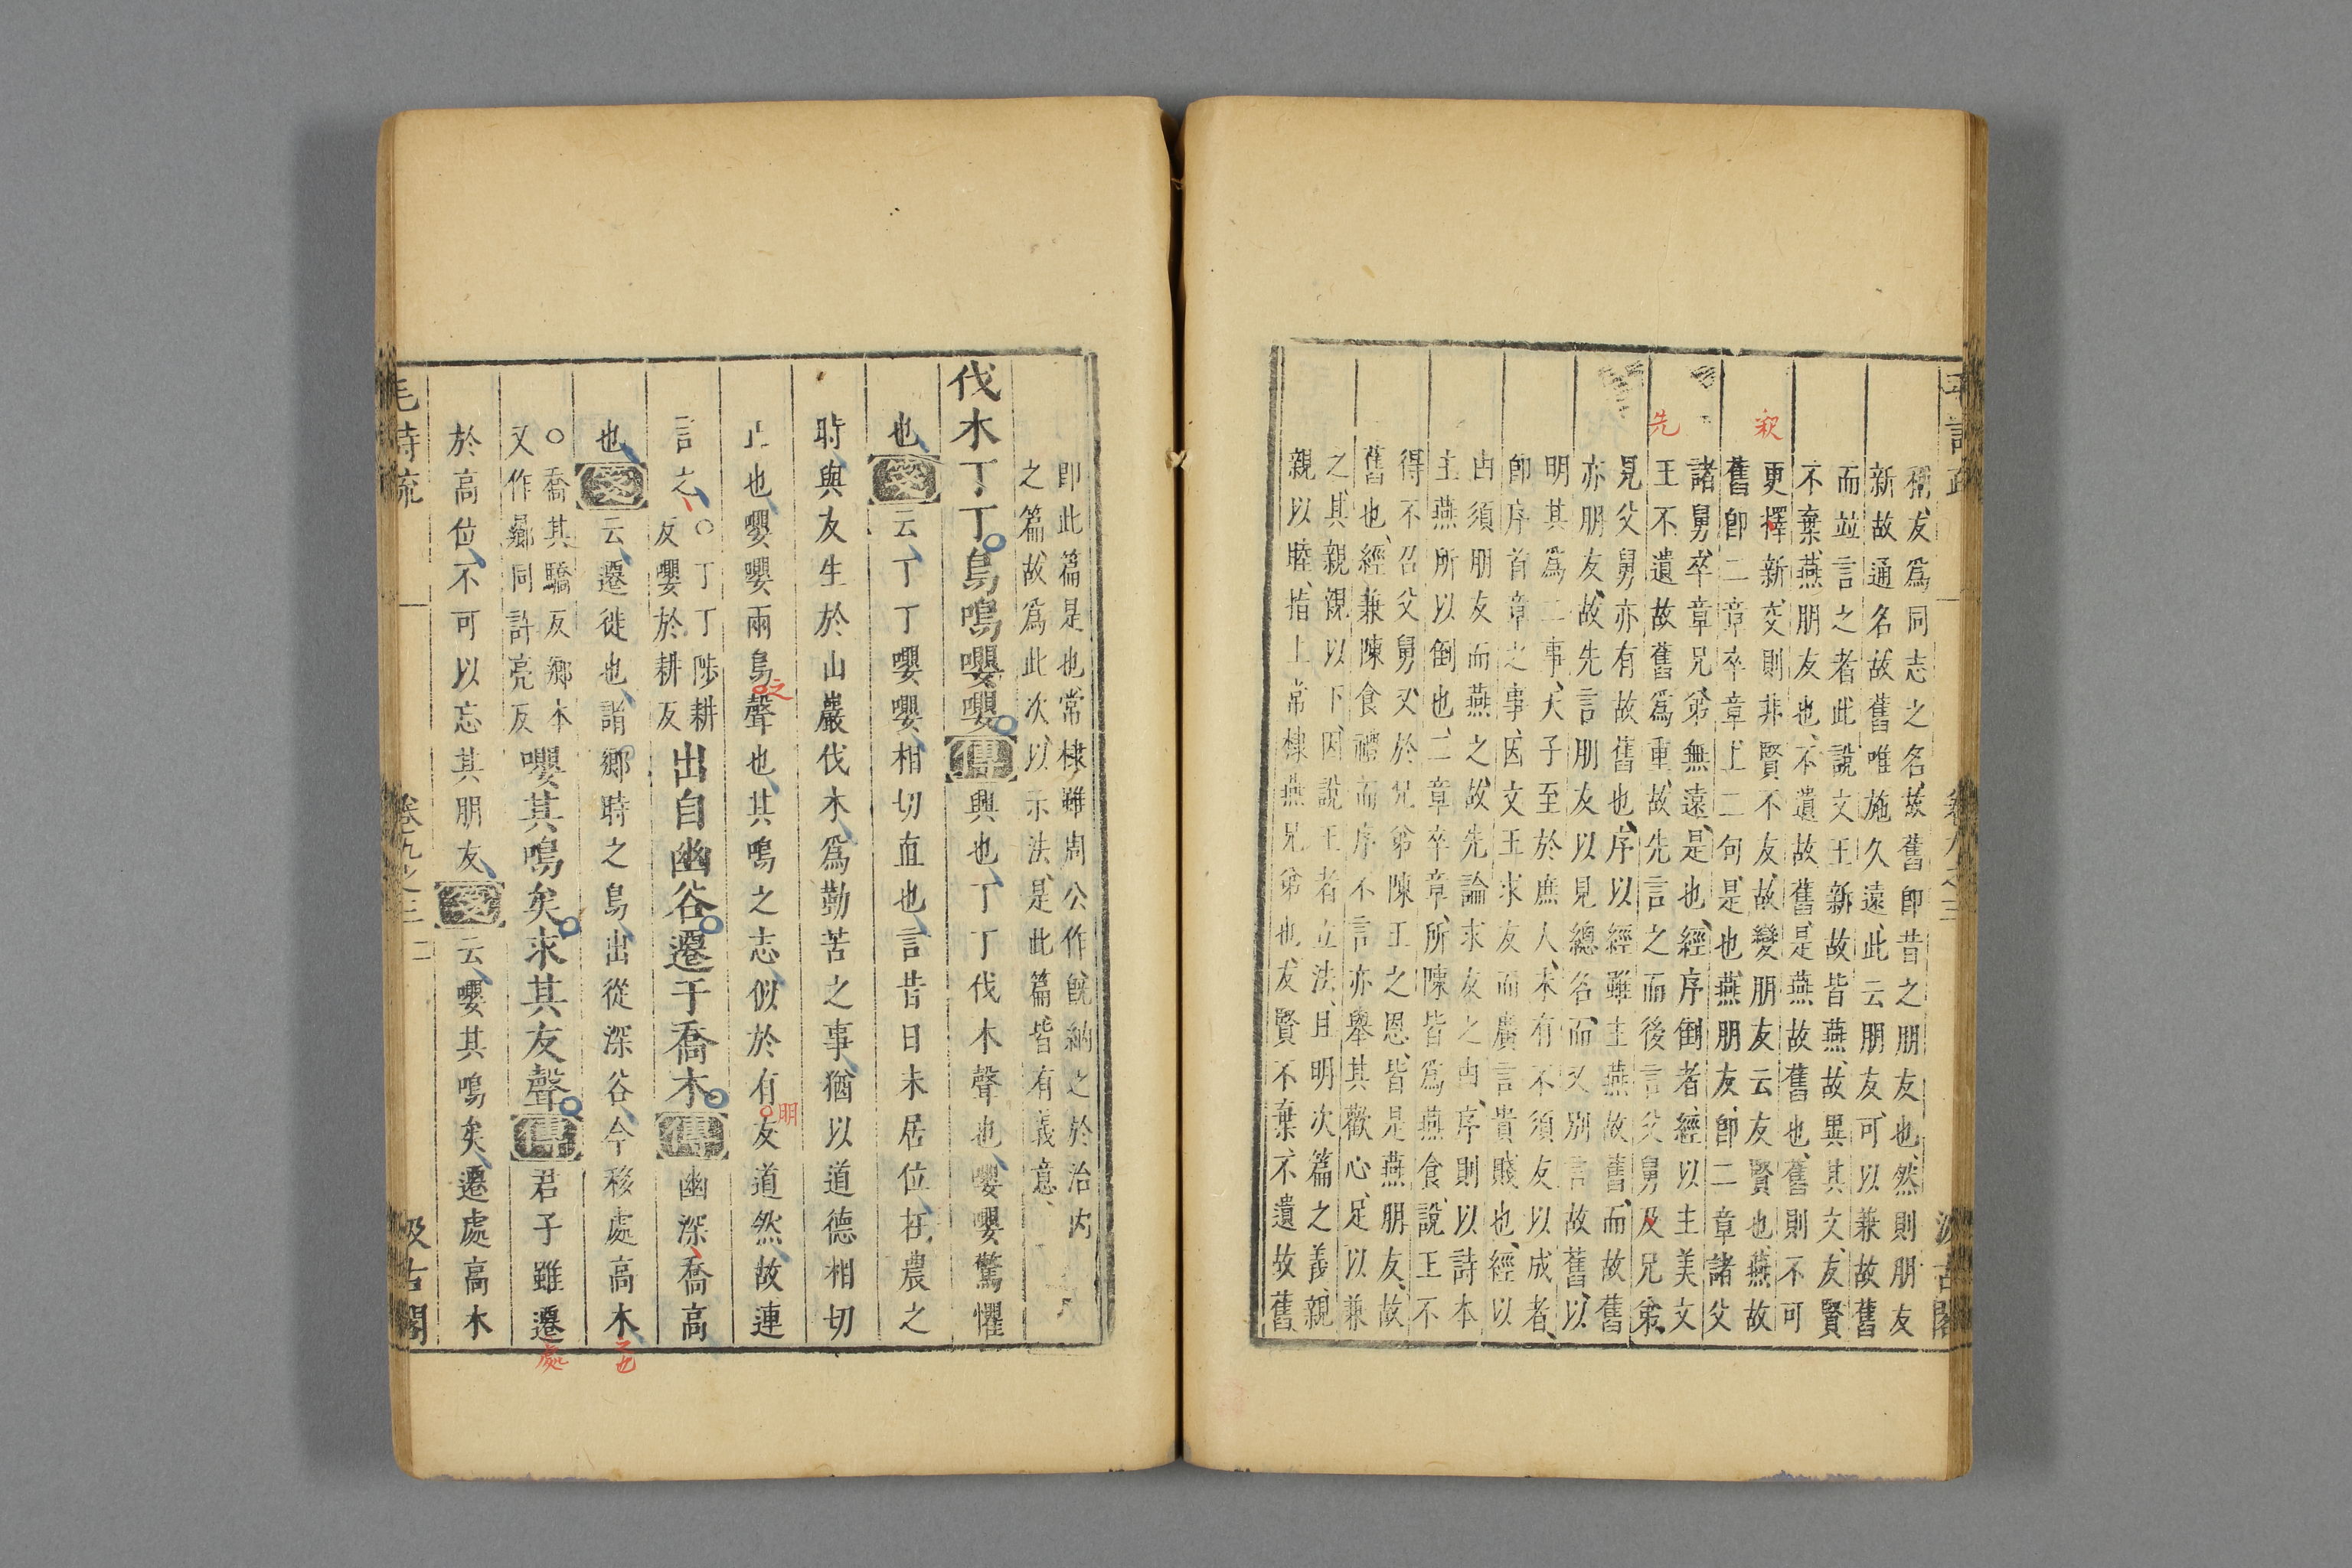 稱友爲同志之名故舊卽昔之朋友也然則朋友
新故通名故舊唯施久遠此云朋友可以兼故舊
而並言之者此說文王新故皆燕故異其文友賢
不棄燕朋友也不遺故舊是燕故舊也舊則不可
更擇新交則非賢不友故變朋友云友賢也燕故
舊卽二章卒章上二句是也燕朋友卽二章諸父
諸舅卒章兄弟無遠是也經序倒者經以主美文
王不遺故舊爲重故先言之而後言父舅及兄弟
見父舅亦有故舊也序以經雖主燕故舊而故舊
亦朋友故先言朋友以見總名而又別言故舊以
明其爲二事天子至於庶人未有不須友以成者
卽序首章之事因文王求友而廣言貴賤也經以
由須朋友而燕之故先論求友之由序則以詩本
主燕所以倒也二章卒章所陳皆爲燕食說王不
得不召父舅又於兄弟陳王之恩皆是燕朋友故
舊也經兼陳食禮而序不言亦舉其歡心足以兼
之其親親以下因說王者立法且明次篇之義親
親以睦指上常棣燕兄弟也友賢不棄不遺故舊
釈
先
毛詩疏
卷九之三
汲古閣
卽此篇是也常棣雖周公作旣納之於治內
之篇故爲此次以示法是此篇皆有義意
伐木丁丁鳥鳴嚶嚶傳興也丁丁伐木聲也嚶嚶驚懼
也箋云丁丁嚶嚶相切直也言昔日未居位在農之
時與友生於山巖伐木爲勤苦之事猶以道德相切
正也嚶嚶兩鳥聲也其鳴之志似於有友道然故連
之
明
言之○丁丁陟耕
反嚶於耕反
出自幽谷遷于喬木傳幽深喬高
也箋云遷徙也謂鄉時之鳥出從深谷今移處高木
也
○喬其驕反鄉本
又作曏同許亮反
嚶其鳴矣求其友聲傳君子雖遷
處
於高位不可以忘其朋友箋云嚶其鳴矣遷處高木
毛詩疏
卷九之三
二
汲古閣